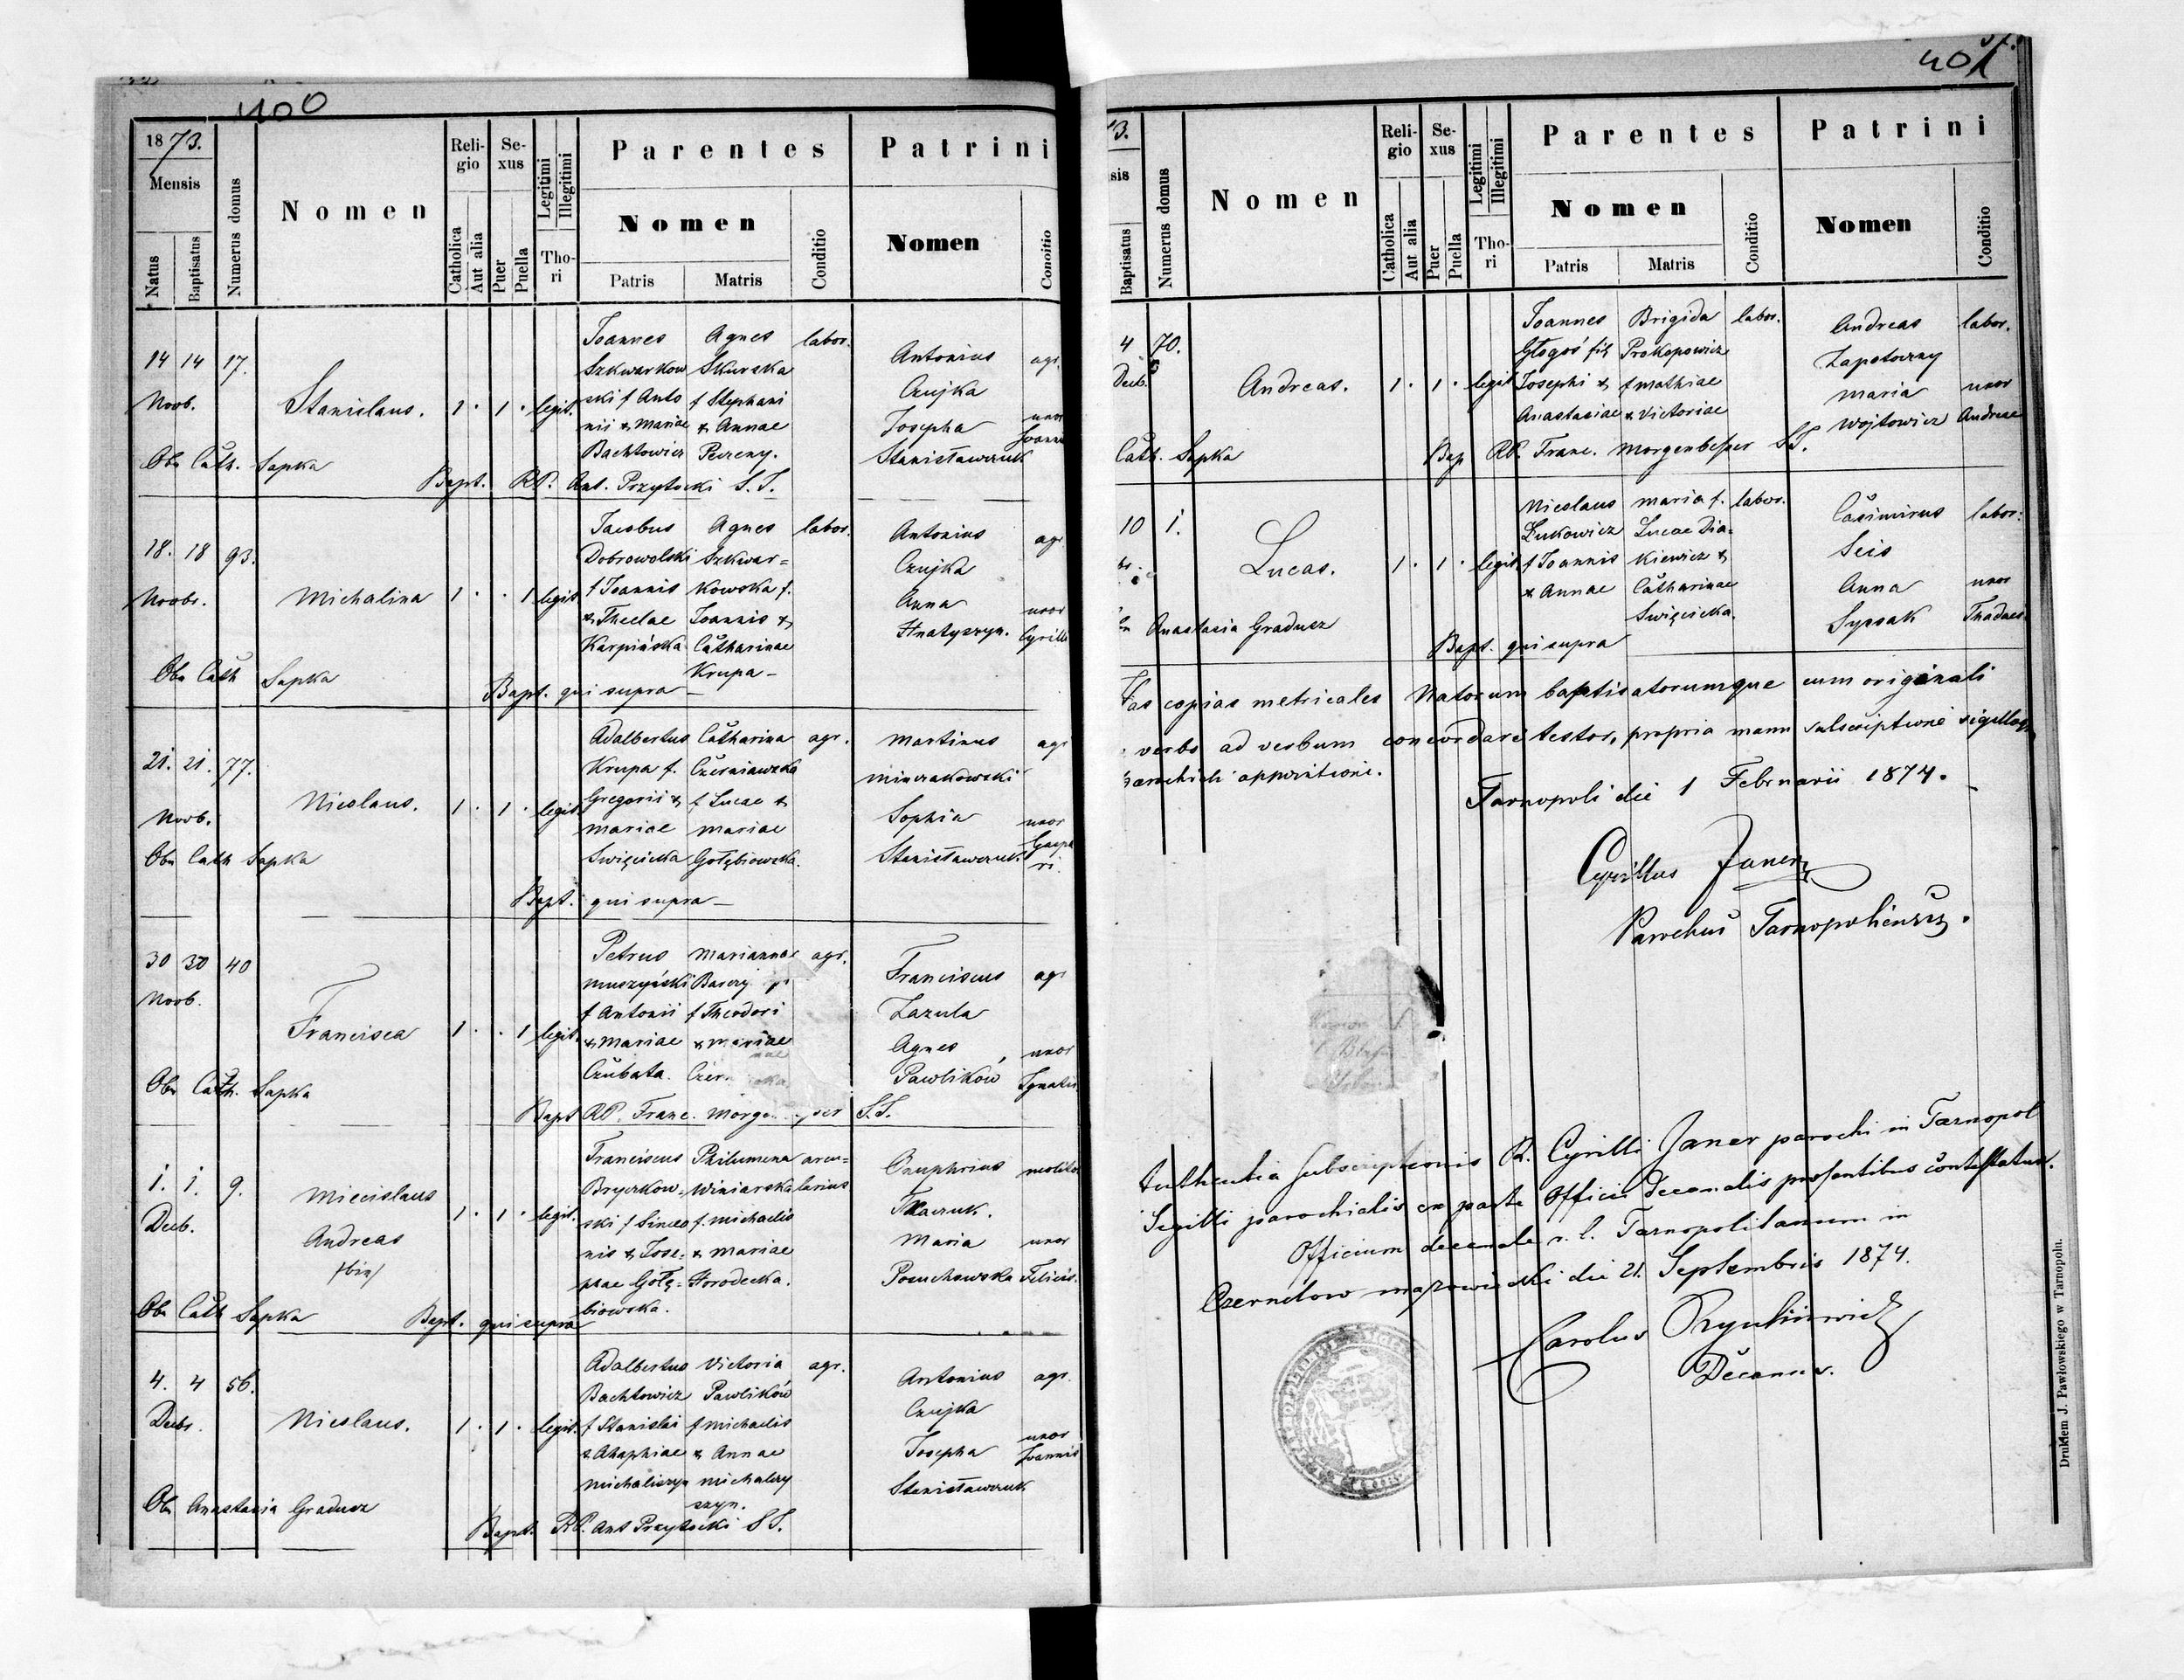 400
1873.
Mensis
Natus
Baptisatus
Numerus domus
Nomen
Religio
Catholica
Aut alia
Sexus
Puer
Puella
Legitimi
Illegitimi
Thori
Parentes
Nomen
Patris
Matris
Conditio
Patrini
Nomen
Conditio
14 14 17.
Novb.
Stanislaus. 1 · 1 · legit.
Joannes Agnes labor.
Szkwarkow Skurska
ski f Anto f Stephani
nii & Mariae & Annae
Bachtowicz
Antonius agr.
Czujka
Josepha uxor
Stanisławczuk Joannis
Obs Cath. Sapka
Bapt. RP. Ant. Przytocki S.J.
18. 18 93.
Novbr.
Michalina 1 · · 1 legit
Jacobus Agnes labor.
Dobrowolski Szkwar=
f Joannis kowska f.
& Theclae Joannis &
Karpińska Catharinae
Krupa –
Antonius agr
Czujka
Anna uxor
Hnatyszyn. Cyrilli
Obs Cath Sapka
Bapt. qui supra –
21. 21. 77.
Novb.
Nicolaus. 1 · 1 · legit.
Adalbertus Catharina agr.
Krupa f. Czerniawska
Gregorii & f Lucae &
Mariae Mariae
Swięcicka Gołębiowska.
Martinus agr
Minczakowski
Sophia uxor
Stanisławczuk Gaspa
ri.
Obs Cath Sapka
Bapt. qui supra –
30 30 40
Novb.
Francisca 1 · · 1 legit.
Petrus Mariannae agr.
Muszyński
f Antonii f Theodori
& Mariae & Mariae
Czubata.
Franciscus agr
Zazula
Agnes, uxor
Pawlików Ignatii
Obs Cath. Sapka
Bapt RP. Franc. S.J.
1. 1. 9.
Decb.
Miecislaus
Andreas
/bin/
1 · 1 · legit.
Franciscus Philumena arcu=
Bryczkow= Winiarska larius
ski f Simeo f. Michaelis
nis & Jose= & Mariae
phae Gołę= Horodecka.
biowska.
Onuphrius molitor
Tkaczuk.
Maria uxor
Poruchowska Felicis.
Obs Cath Sapka
Bapt. qui supra
4. 4 56.
Decbr.
Nicolaus. 1 · 1 · legit.
Adalbertus Victoria agr.
Bachtowicz Pawlików
f Stanislai f Michaelis
& Ahaphiae & Annae
Michaliszyn Michalczy
szyn.
Antonius agr.
Czujka
Josepha uxor
Stanisławczuk Joannis
Obs Anastasia Gradusz
Bapt. RP. Ant Przytocki S J.
401
3.
sis
Baptisatus
Numerus domus
Nomen
Religio
Catholica
Aut alia
Sexus
Puer
Puella
Legitimi
Illegitimi
Thori
Parentes
Nomen
Patris
Matris
Conditio
Patrini
Nomen
Conditio
4 70.
Decb.
Andreas. 1 · 1 · legit
Joannes Brigida labor.
Głogoś fil Prokopowicz
Josephi & f Mathiae
Anastasiae & Victoriae
Andreas labor.
Zapotoczny
Maria uxor
Wojtowicz Andreae
Cath. Sapka
Bap RP. Franc. Morgenbesser S.J.
10 1.
Lucas. 1 · 1 · legit
Nicolaus Maria f. labor.
Łukowicz Lucae Dia=
f Joannis kiewicz &
& Annae Catharinae
Swięcicka.
Casimirus labor.
Seis
Anna uxor
Syssak Thadaei
Anastasia Gradusz
Bapt. qui supra
Has copias metricales Natorum baptisatorumque cum originali
verbo ad verbum concordare testor, propria manu subscriptione sigilloque
parochiali appositione.
Tarnopoli die 1 Februarii 1874.
Cyrillus Janer
Parochus Tarnopoliensis.
Authentia Subscriptionis R. Cyrilli Janer parochi in Tarnopol
Sigilli parochialis ex parte Officii decanalis praesentibus contestatur.
Officium decanale r. l. Tarnopolitanum in
Czernelow mazowiecki die 21. Septembris 1874.
Carolus
Decanus.
Drukiem J. Pawłowskiego w Tarnopolu.